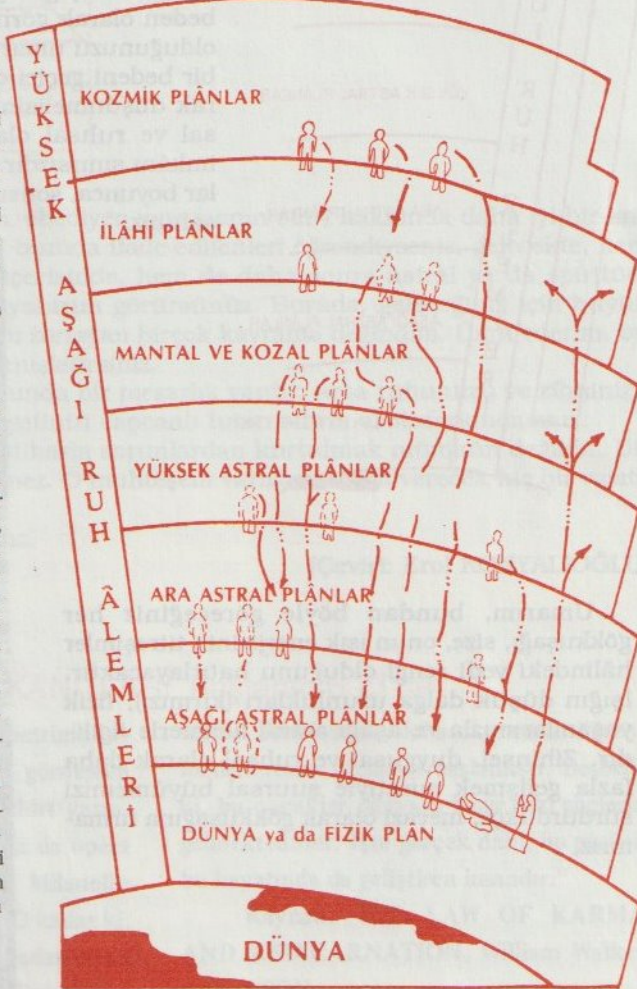 YÜKSEK AŞAĞI RUH ÂLEMLERİ
KOZMİK PLÂNLAR
İLÂHİ PLÂNLAR
MANTAL VE KOZAL PLÂNLAR
YÜKSEK ASTRAL PLÂNLAR
ARA ASTRAL PLÂNLAR
AŞAĞI ASTRAL PLÂNLAR
DÜNYA ya da FİZİK PLÂN
DÜNYA